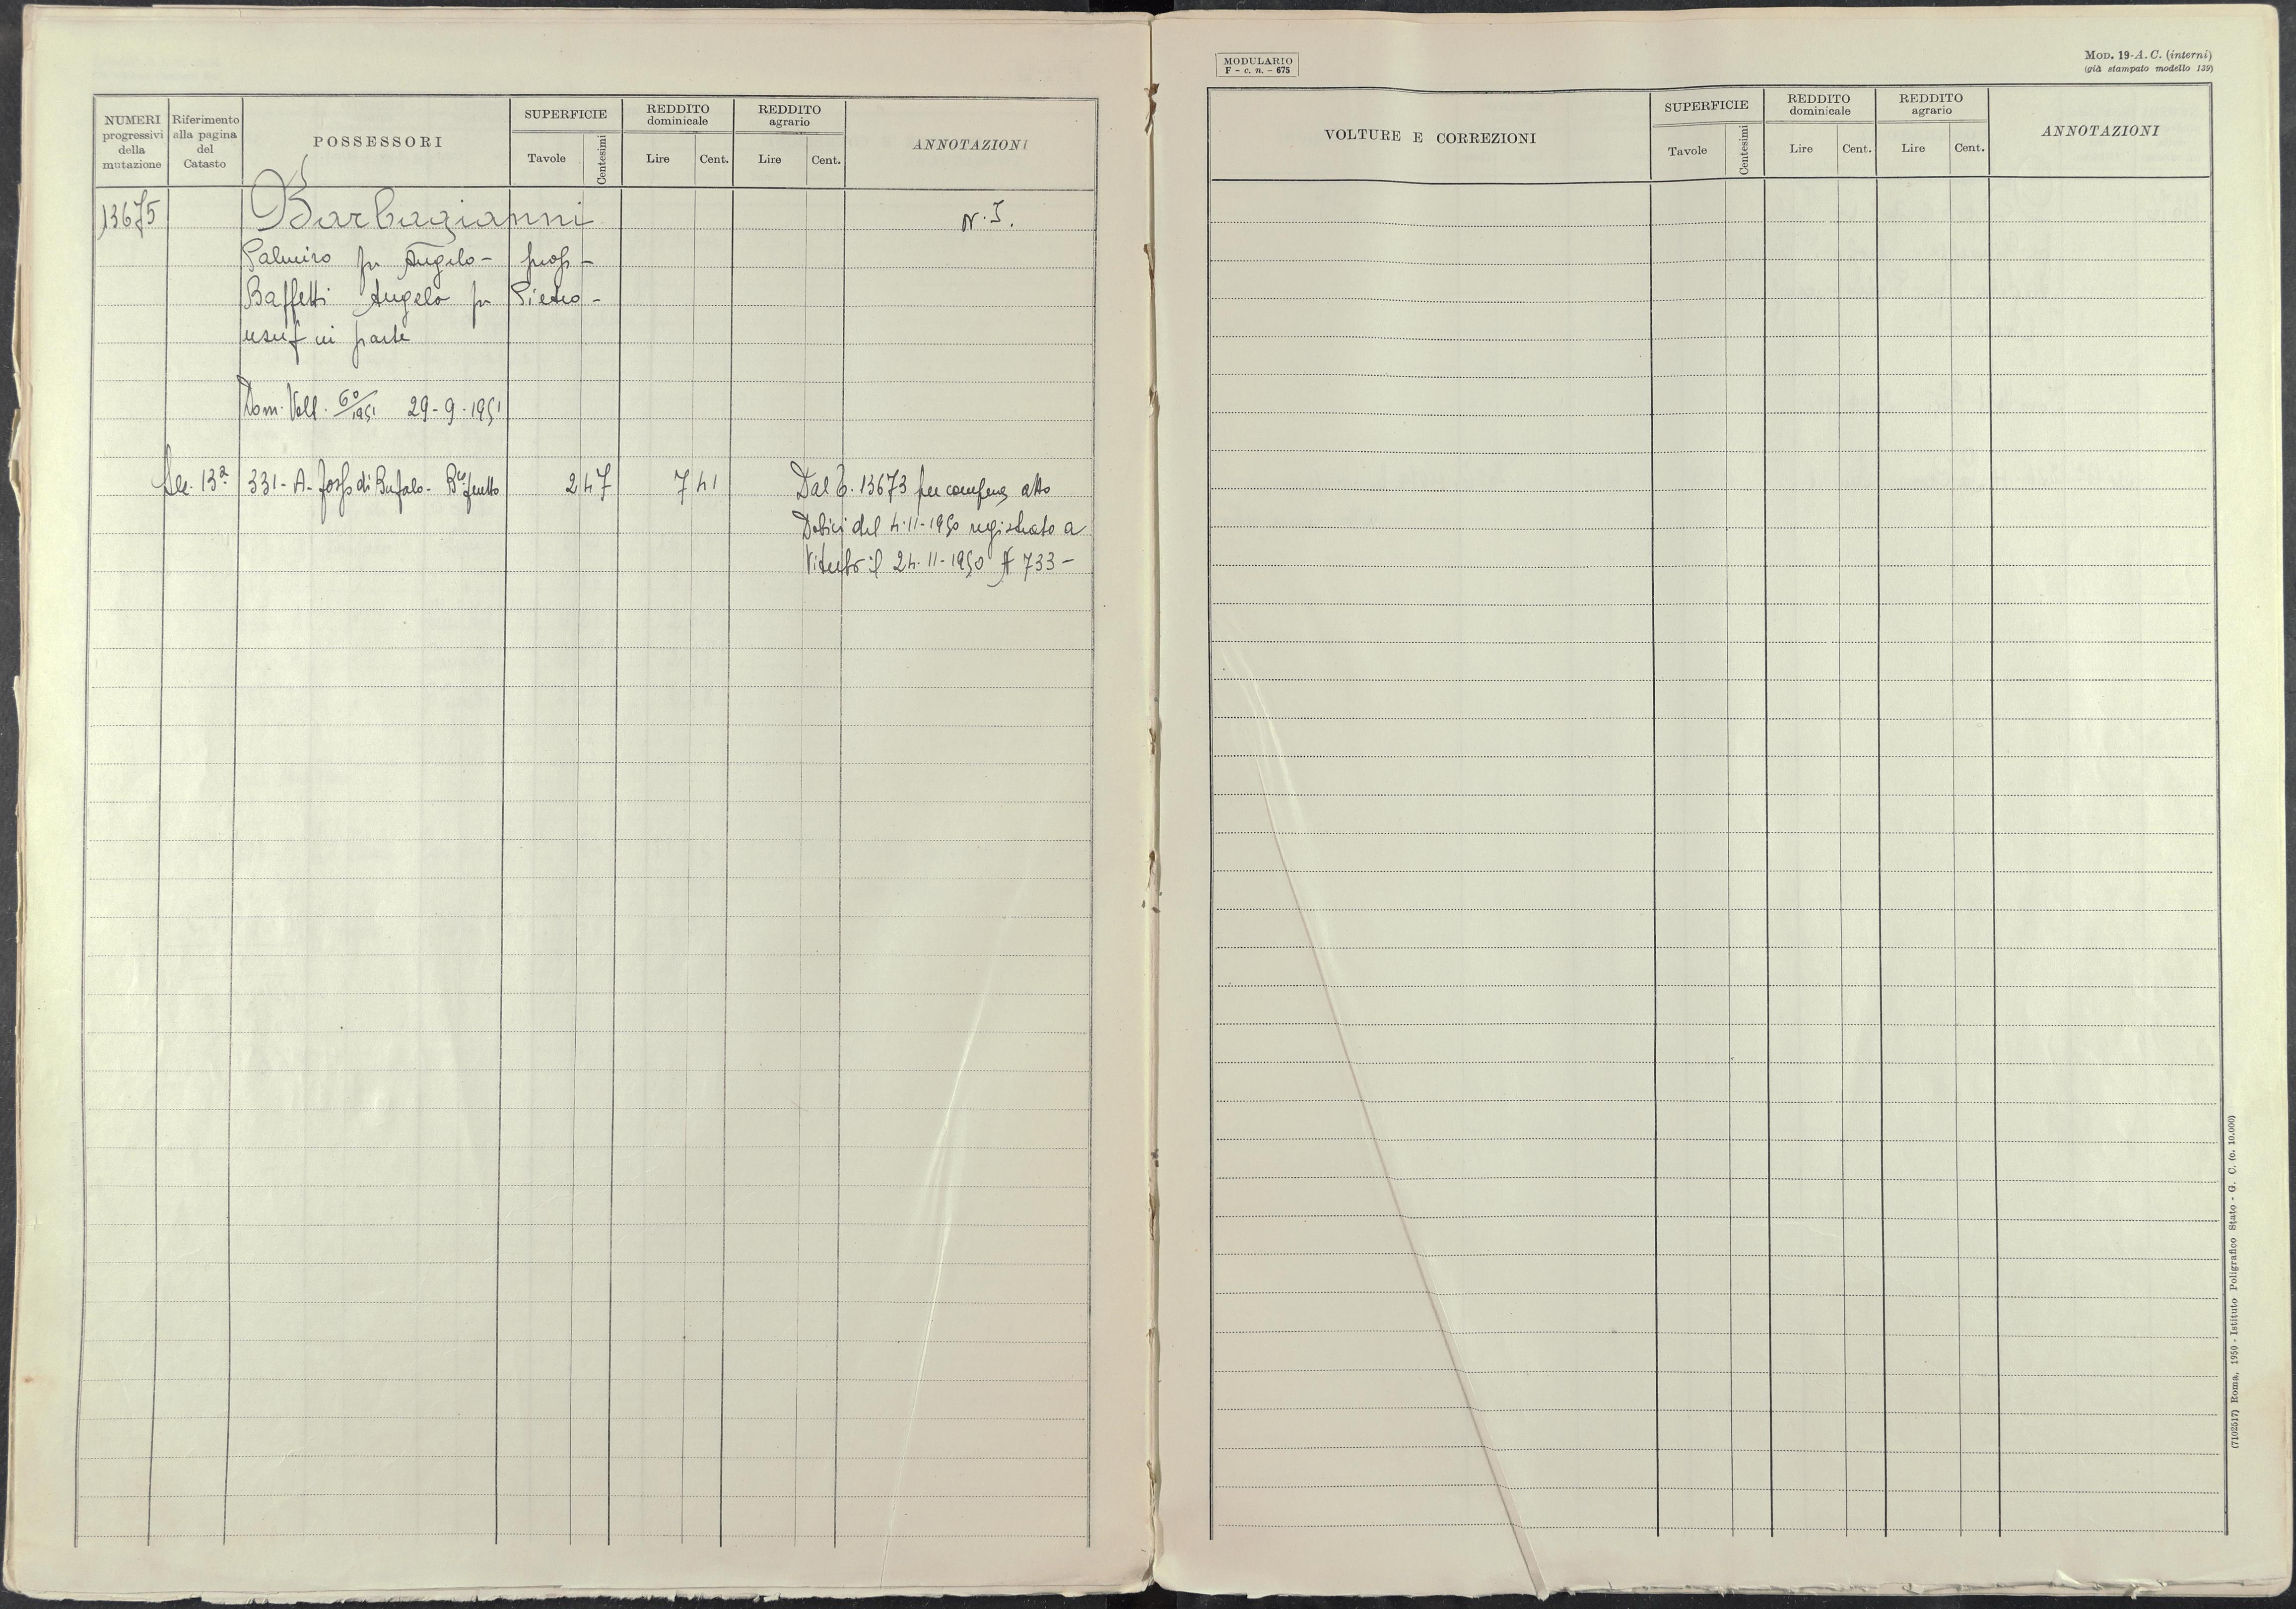 NUMERI progressivi della mutazione
Riferimento alla pagina del Catasto
POSSESSORI
SUPERFICIE
Tavole
Centesimi
REDDITO dominicale
Lire
Cent.
REDDITO agrario
Lire
Cent.
ANNOTAZIONI
13675
Barbagianni
N. I.
Palmiro fu Angelo - prop -
Baffetti Angelo fu Pietro -
usuf in parte
Dom. Volt. 60/1951 29-9-1951
Sez. 13ª 331- A- fosso di Bufalo - 247 741 Dal C. 13673 per atto
del 4-11-1950 registrato a
Viterbo il 24-11-1950 733 -
MODULARIO
F - c. n. - 675
MOD. 19-A. C. (interni)
(già stampato modello 139)
VOLTURE E CORREZIONI
SUPERFICIE
Tavole
Centesimi
REDDITO dominicale
Lire
Cent.
REDDITO agrario
Lire
Cent.
ANNOTAZIONI
(7102517) Roma, 1950 - Istituto Poligrafico Stato - G. C. (o. 10.000)